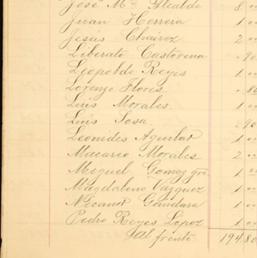 José Ma. Alcalde 8
Juan Herrera 1
Jesús Chairez 2
Liberato Castorena 90
Leopoldo Reyes 1
Lorenzo Flores
Luis Morales. 1
Luis Sosa
Leonides Aguilar 1
Macario Morales 2
Miguel Gomez 1
Magdaleno Vazquez 1
Nicanor Gándara 1
Pedro Reyes Lopez 1
Al frente 194